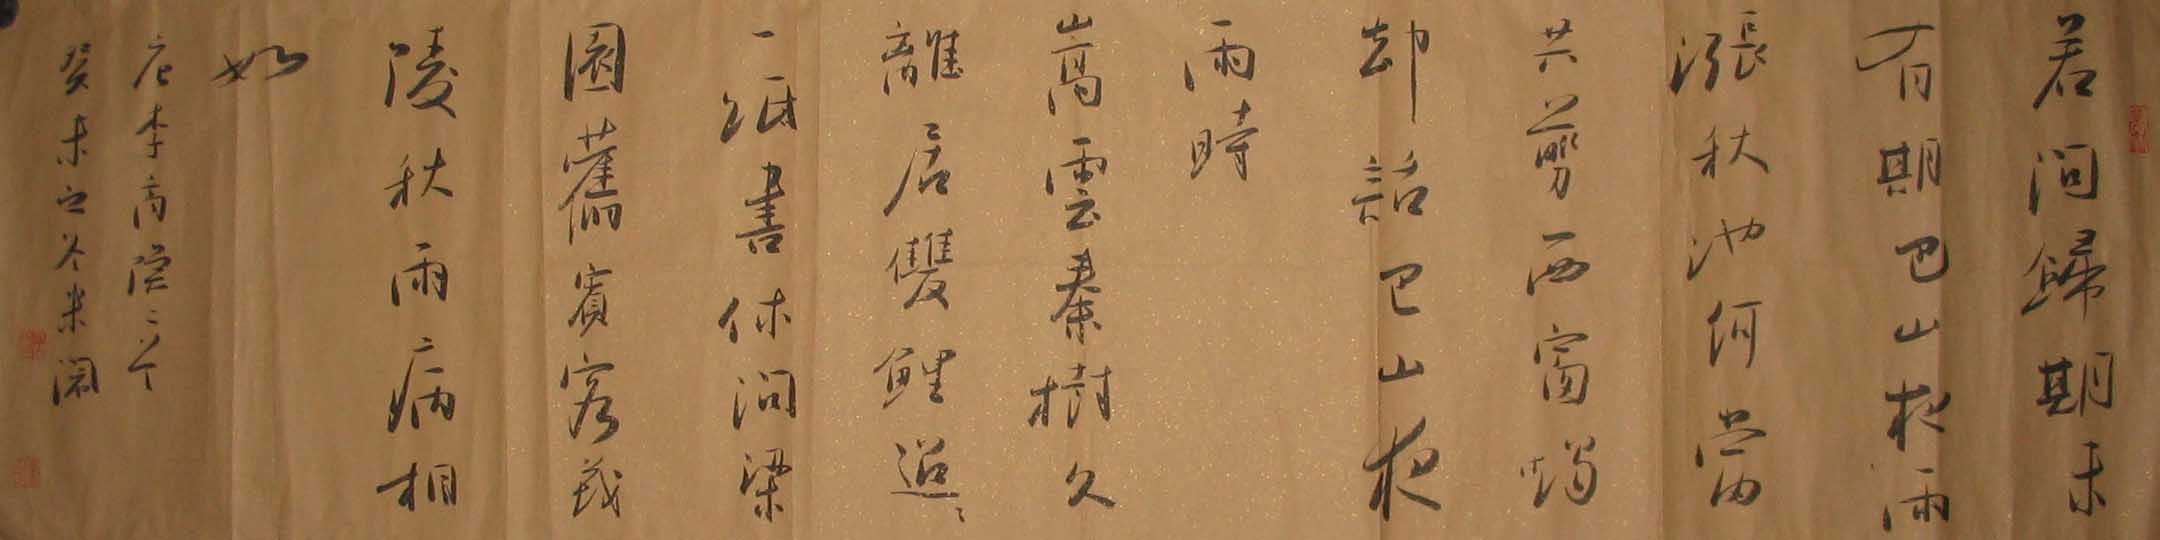 君問歸期未
有期巴山夜雨
漲秋池何當
共剪西窗燭
却話巴山夜
雨時
嵩雲秦樹久
離居雙鯉迢〻
一紙書休問梁
園舊賓客茂
陵秋雨病相
如
唐李商隱二首
癸未之冬米閑